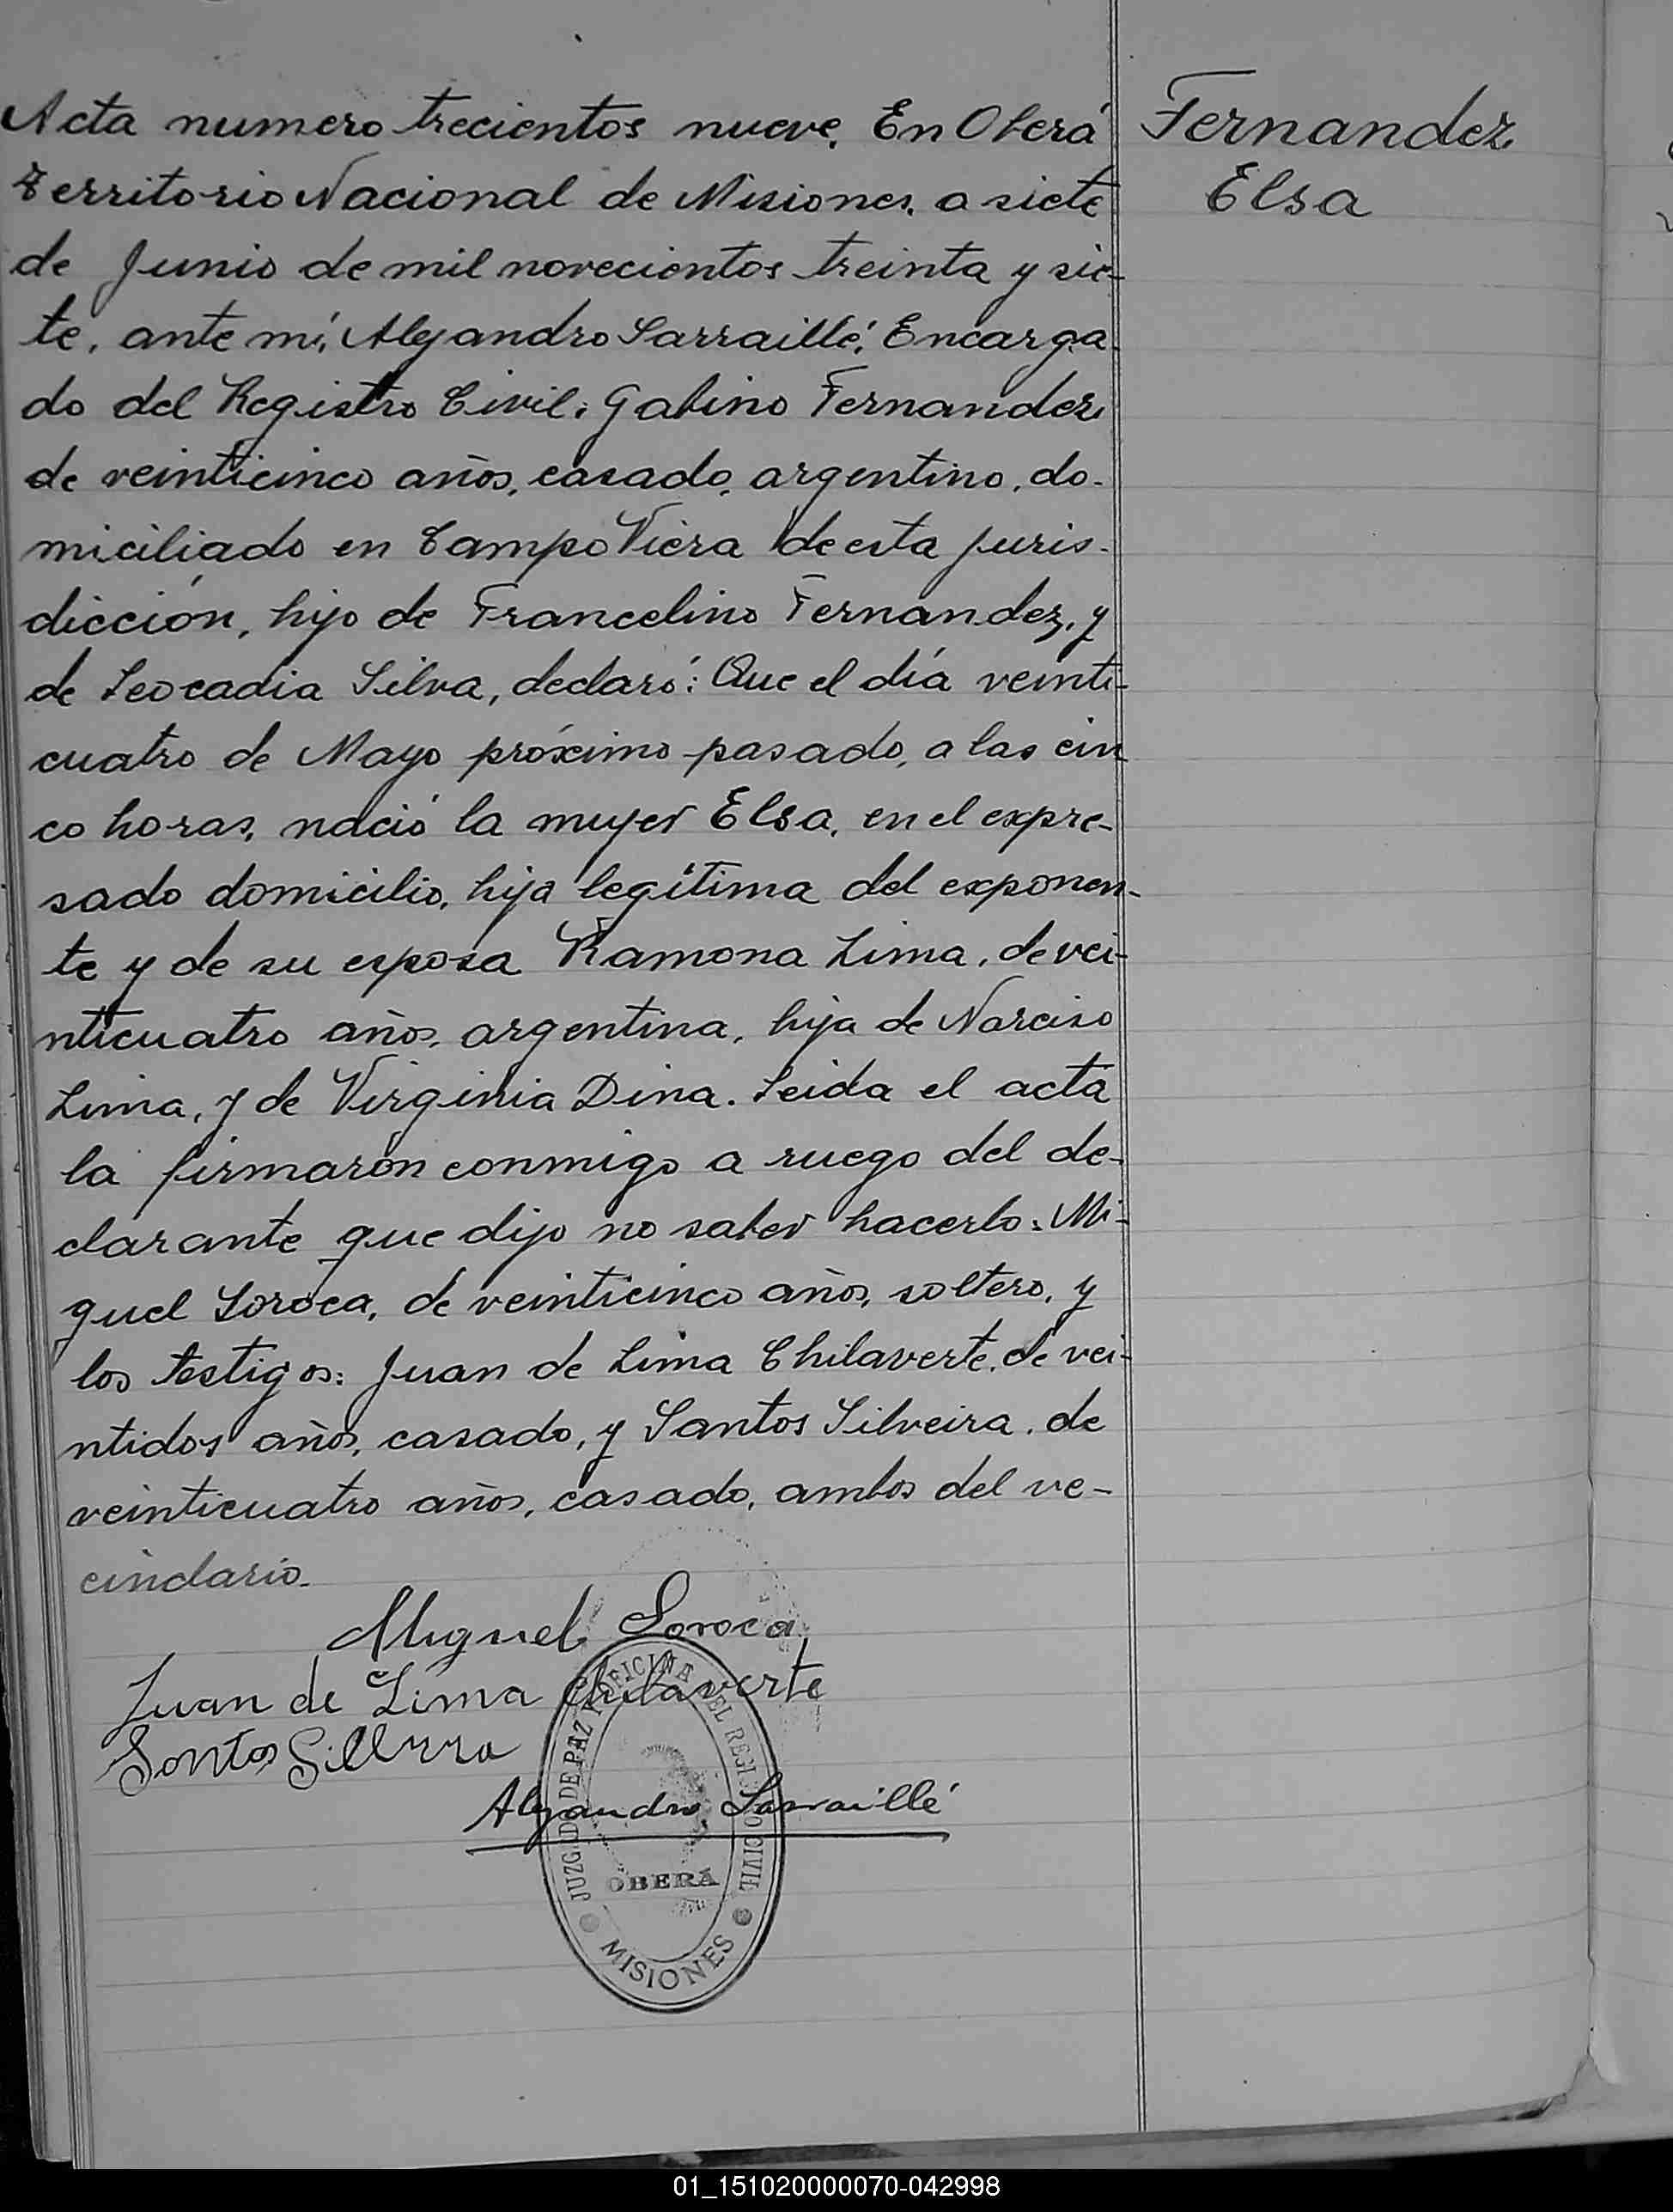 Acta numero trecientos nueve. En Oberá
Territorio Nacional de Misiones, a siete
de Junio de mil novecientos treinta y sie-
te, ante mí, Alejandro Sarraillé, Encarga
do del Registro Civil: Gabino Fernandez,
de veinticinco años, casado, argentino, do-
miciliado en Campo Viera de esta juris-
dicción, hijo de Francelino Fernandez, y
de Leocadia Silva, declaró: Que el día veinti-
cuatro de Mayo próximo pasado, a las cin
co horas, nació la mujer Elsa, en el expre-
sado domicilio, hija legítima del exponen-
te y de su esposa Ramona Lima, de vei-
nticuatro años, argentina, hija de Narciso
Lima, y de Virginia Dina. Leida el acta
la firmarón conmigo a ruego del de-
clarante que dijo no saber hacerlo: Mi-
guel Soroca, de veinticinco años, soltero, y
los testigos: Juan de Lima Chilaverte, de vei-
ntidos años, casado, y Santos Silveira, de
veinticuatro años, casado, ambos del ve-
cindario.
Fernandez
Elsa
Miguel Soroca
Juan de Lima Chilaverte
Alejandro Sarraillé
JUZGADO DE PAZ Y OFICINA DEL REGISTRO CIVIL
OBERÁ
MISIONES
01_151020000070-042998